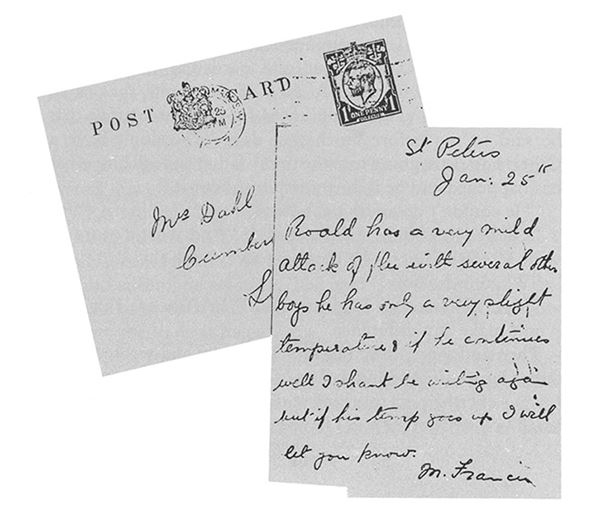 POST CARD
ONE PENNY
Mrs Dahl
Cumber
St Peters
Jan. 25th
Roald has a very mild
attack of flu with several other
boys he has only a very slight
temperature & if he continues
well I shant be writing again
but if his temp goes up I will
let you know.
M. Francis